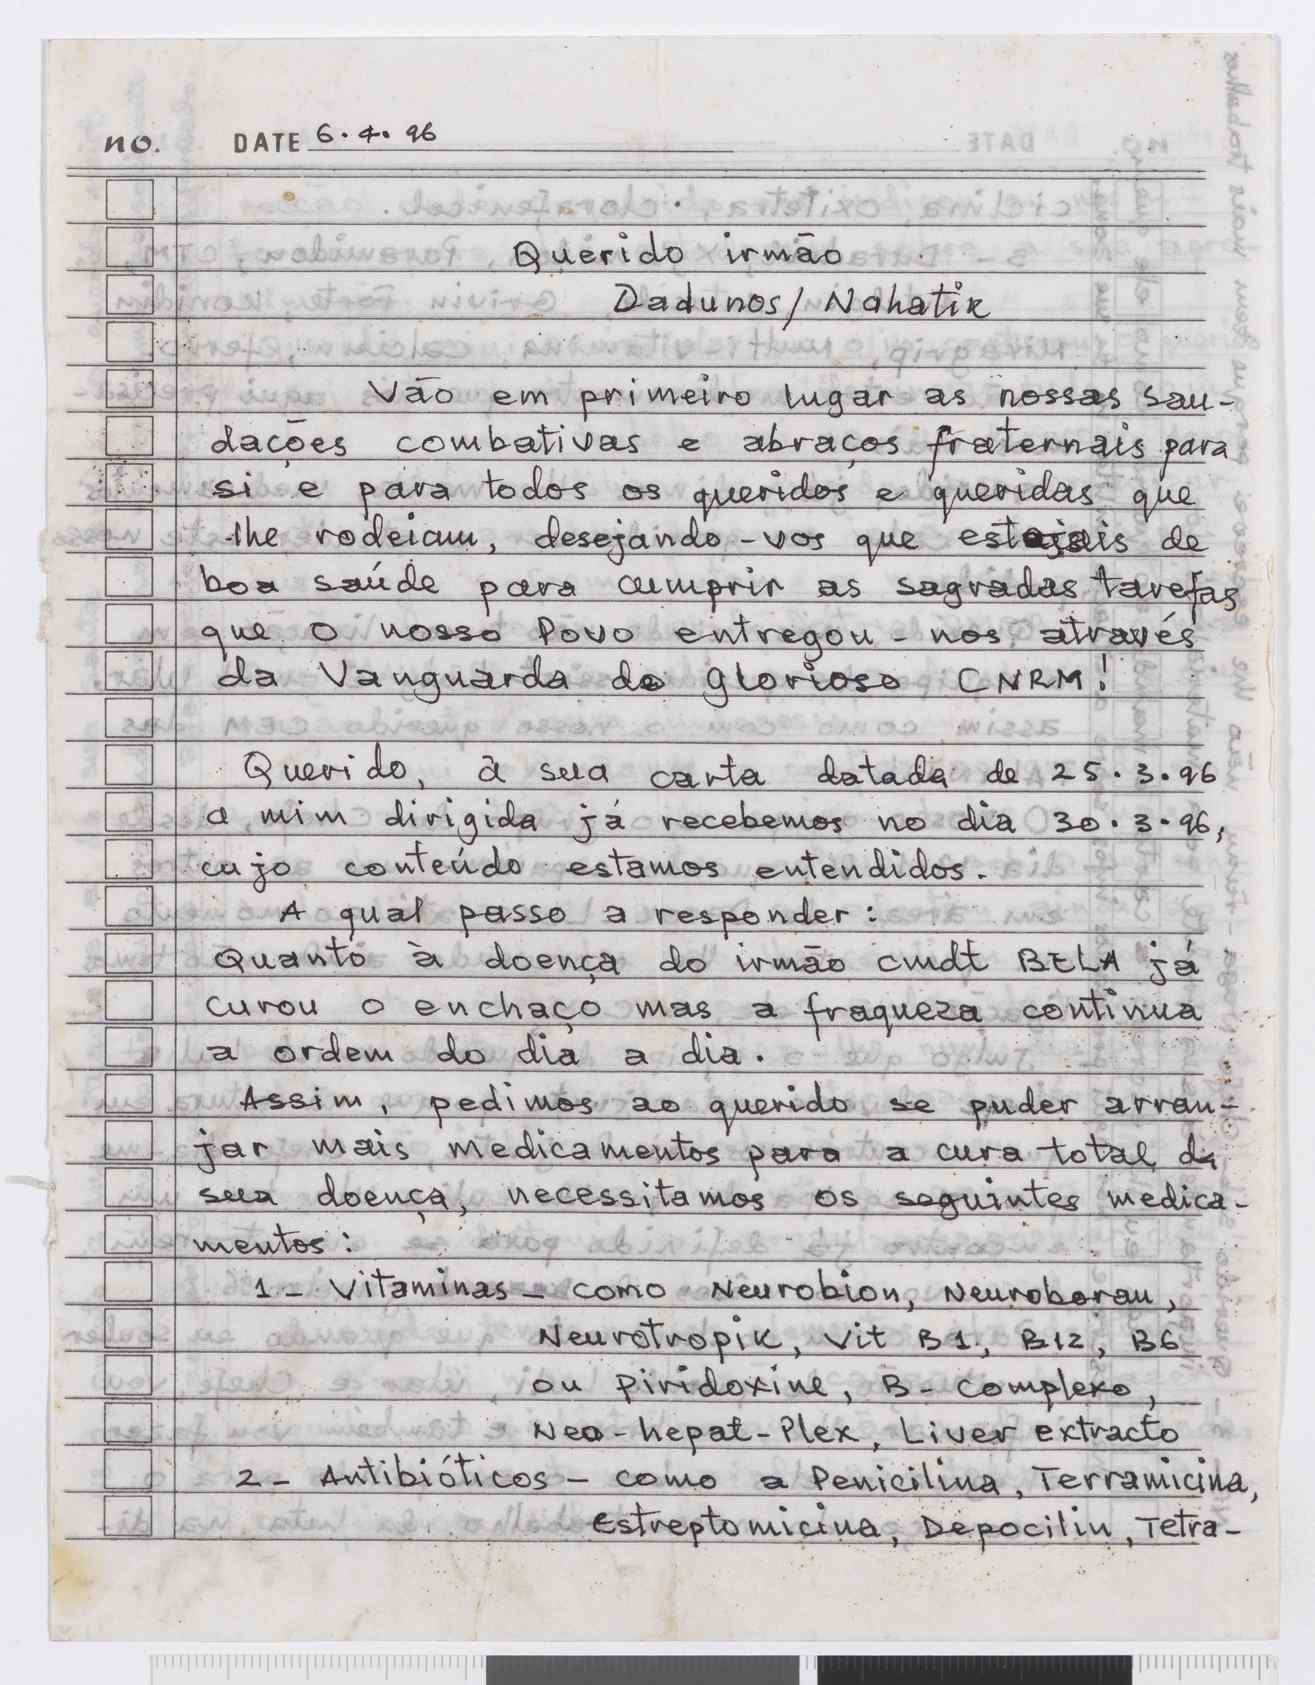 no. DATE 6.4.96
Querido irmão
Dadunos/Nahatik
Vão em primeiro lugar as nossas sau-
dações combativas e abraços fraternais para
si e para todos os queridos e queridas que
lhe rodeiam, desejando-vos que estejais de
boa saúde para cumprir as sagradas tarefas
que o nosso Povo entregou-nos através
da Vanguarda do glorioso CNRM!
Querido, à sua carta datada de 25.3.96
a mim dirigida já recebemos no dia 30.3.96,
cujo conteúdo estamos entendidos.
A qual passo a responder:
Quanto à doença do irmão cmdt BELA já
curou o enchaço mas a fraqueza continua
a ordem do dia a dia.
Assim, pedimos ao querido se puder arran-
jar mais medicamentos para a cura total da
sua doença, necessitamos os seguintes medica-
mentos:
1- Vitaminas - como Neurobion, Neuroboran,
Neurotropik, Vit B1, B12, B6
ou Piridoxine, B-complexo,
Neo-hepat-Plex, Liver extracto
2- Antibióticos - como a Penicilina, Terramicina,
Estreptomicina, Depocilin, Tetra-